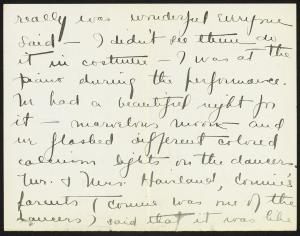 really was wonderful everyone
said — I didn't see them do
it in costume — I was at the
piano during the performance.
We had a beautiful night for
it — marvelous moon and
we flashed different colored
calcium lights on the dancers
Mrs. & Mrs. Haviland, Connie's
parents (Connie was one of the
dancers) said that it was like